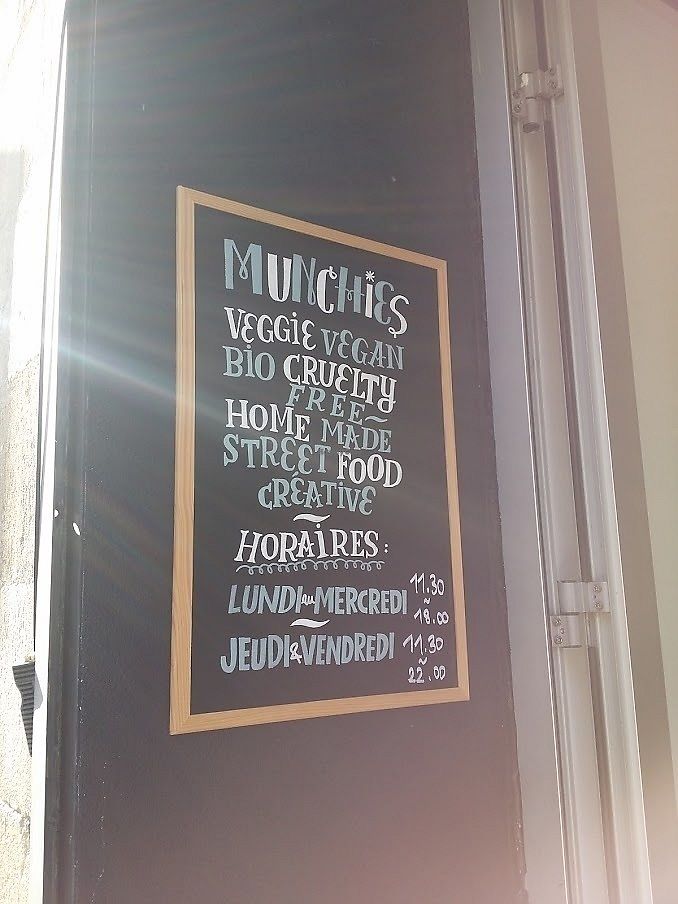 MUNCHIES
VEGGIE VEGAN
BIO CRUELTY
FREE~
HOME MADE
STREET FOOD
CRÉATIVE
~
HORAIRES:
LUNDI au MERCREDI 11.30 ~ 18.00
~
JEUDI & VENDREDI 11.30 ~ 22.00